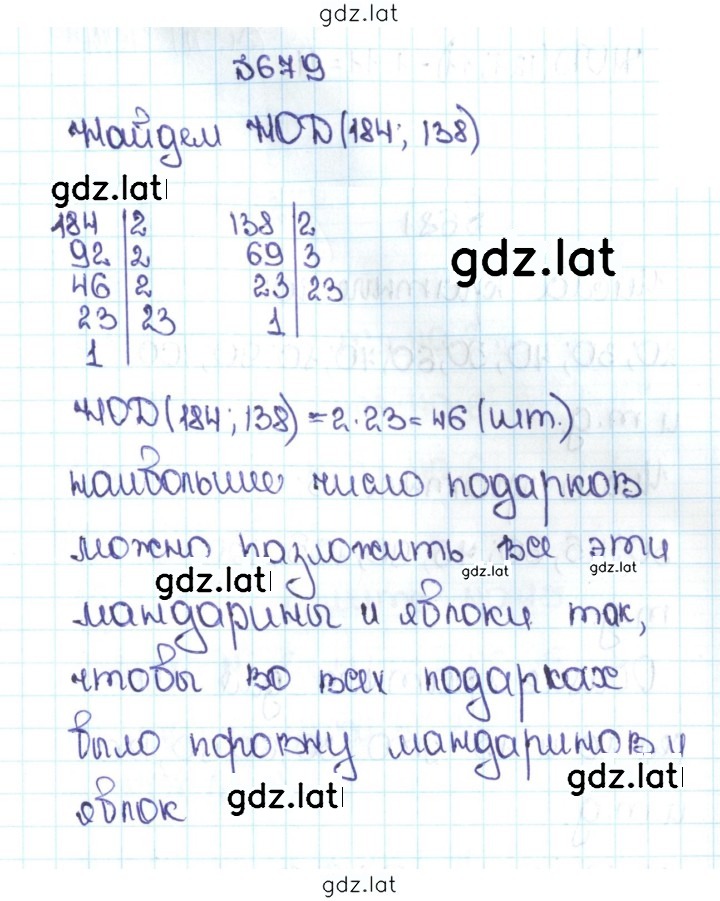 gdz.lat
№679
Найдем НОД(184; 138)
gdz.lat
184 | 2 138 | 2
92 | 2 69 | 3
gdz.lat
46 | 2 23 | 23
23 | 23 1
1
НОД(184; 138) = 2·23 = 46 (шт.)
наибольшие число подарков
можно разложить все эти
gdz.lat gdz.lat gdz.lat
мандарины и яблоки так,
чтобы во всех подарках
было поровну мандаринов и
gdz.lat
яблок gdz.lat
gdz.lat